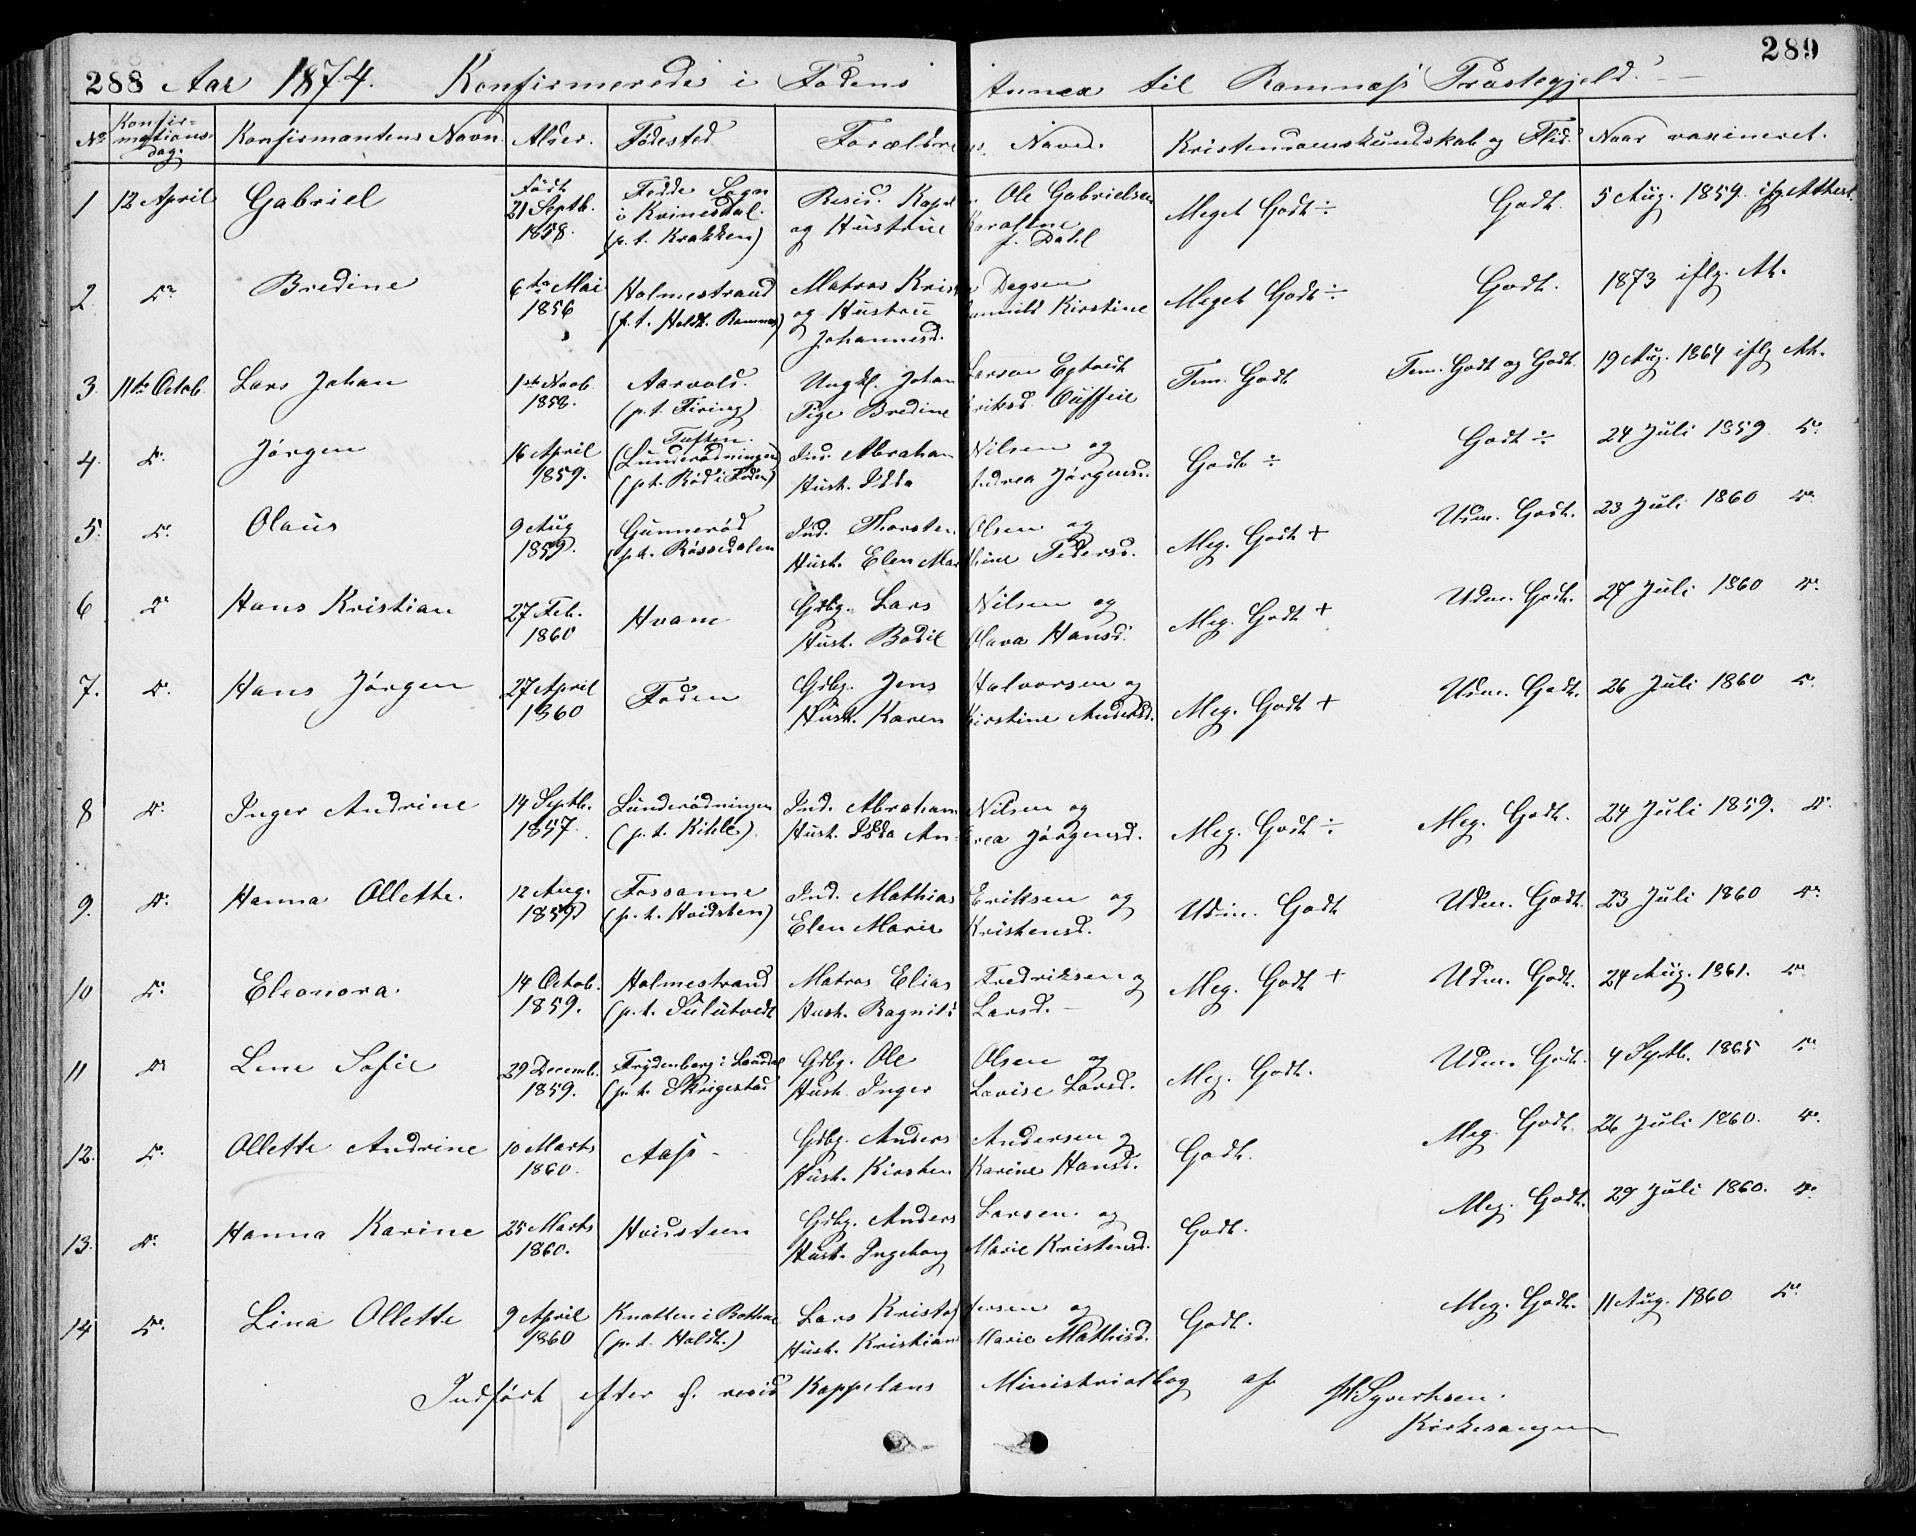 288 Aar 1874. Konfirmerede i Fodens Annex til Ramnæss Præstegjeld. 289
No Konfirmations-dag. Konfirmantens Navn Alder Fødested Forældrenes Navne. Kristendomskundskab og Flid. Naar vaxineret.
1 12 April Gabriel Født 21 Septb. 1858. Fedde Sogn i Kvinesdal. (p.t. Krakken) Resid. Kapel Ole Gabrielsen og Hustrue Karoline f. Dahl Meget Godt ÷ Godt. 5 Aug. 1859. iflg Attest.
2 Do Bredine 6te Mai 1856 Holmestrand (p.t. Holdt. Ramnæs) Matros Krist Dagsen og Hustru Gunnild Kirstine Johannesd. Meget Godt ÷ Godt. 1873 iflg. At.
3 11te Octob. Lars Johan 1ste Novb. 1858. Aarvold. (p.t. Firing) Ungkl. Johan Larsen Egtvedt Pige Bredine Eriksd. Tem. Godt Tem. Godt og Godt. 19 Aug. 1864 iflg At.
4. Do Jørgen 16 April 1859. Toften. (Lunderødningen) (p.t. Rød i Foden) Ind. Abraham Nilsen og Hust. Idda Andrea Jørgensd. Godt ÷ Godt ÷ 24 Juli 1859. Do
5. Do Olaus 9 Aug 1859. Gunnerød (p.t. Røssedalen Ind. Thorsten Olsen og Hust. Elen Mathine Pedersd. Meg. Godt + Udm. Godt. 23 Juli 1860 Do
6 Do Hans Kristian 27 Feb. 1860 Hvam Gdbg. Lars Nilsen og Hust. Bodil Olava Hansd. Meg. Godt + Udm. Godt. 27 Juli 1860 Do
7. Do Hans Jørgen 27 April 1860 Foden Gdbg. Jens Halvorsen og Hust. Karen Kirstine Andersd. Meg. Godt + Udm. Godt. 26 Juli 1860 Do
8 Do Inger Andrine 14 Septb. 1857. Lunderødningen (p.t. Kihle) Ind. Abraham Nilsen og Hust. Idda Andrea Jørgensd. Meg. Godt ÷ Meg. Godt. 24 Juli 1859. Do
9. Do Hanna Ollette. 12 Aug. 1859 Fossanne (p.t. Hvidsten) Ind. Mathias Eriksen og Elen Marie Kristensd. Udm. Godt Udm. Godt. 23 Juli 1860 Do
10 Do Eleonora. 14 Octob. 1859. Holmestrand (p.t. Sulutvedt Matros Elias Fredriksen og Hust. Ragnild Larsd. Meg. Godt + Udm. Godt. 24 Aug. 1861. Do
11 Do Lene Sofie 29 Decemb. 1859. Frydenberg i Laurdal (p.t. Skrigestad Gdbg. Ole Olsen og Hust. Inger Lovise Larsd. Meg. Godt. Udm. Godt. 4 Septb. 1865 Do
12. Do Ollette Andrine 10 Marts 1860. Aass Gdbg. Anders Andersen og Hust. Kirsten Karine Hansd. Godt. Meg. Godt. 26 Juli 1860. Do
13. Do Hanna Karine 25 Marts 1860. Hvidsteen Gdbg. Anders Larsen og Hust. Ingeborg Marie Kristensd. Godt. Meg. Godt. 29 Juli 1860. Do
14 Do Lina Ollette 9 April 1860 Knatten i Bottne (p.t. Holdt.) Lars Kristofersen og Hust. Kristiane Marie Mathisd. Godt. Meg. Godt. 11 Aug. 1860 Do
Indført efter h. resid Kappelans Ministrialbog af
Syvertsen.
Kirkesanger